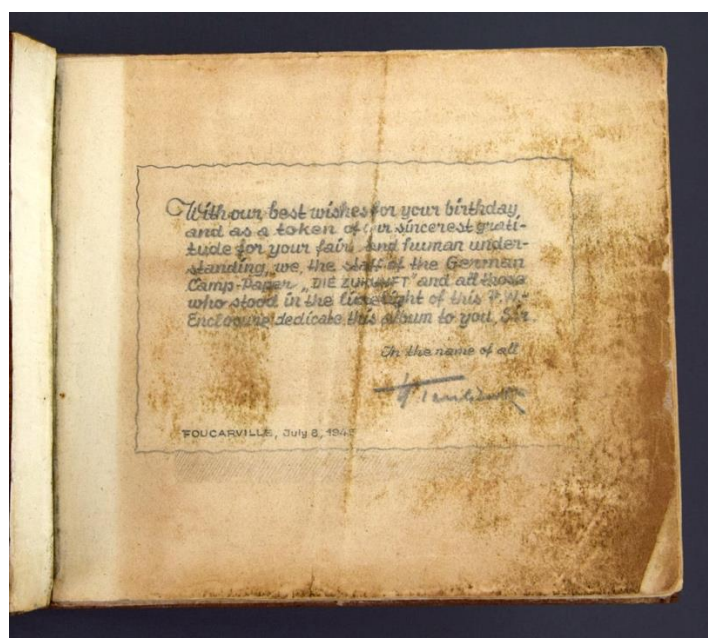 With our best wishes for your birthday
and as a token of our sincerest grati-
tude for your fair and human under-
standing, we, the staff of the German
Camp-Paper „DIE ZUKUNFT" and all those
who stood in the limelight of this P.W.
Enclosure dedicate this album to you, Sir.
In the name of all
FOUCARVILLE, July 8, 194